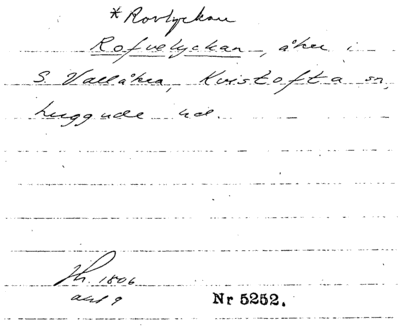 *Rovlyckan
Rofvelyckan, åker i
S. Vallåkra, Kvistofta sn,
Luggude hd.
Th. 1806
akt 9
Nr 5252.